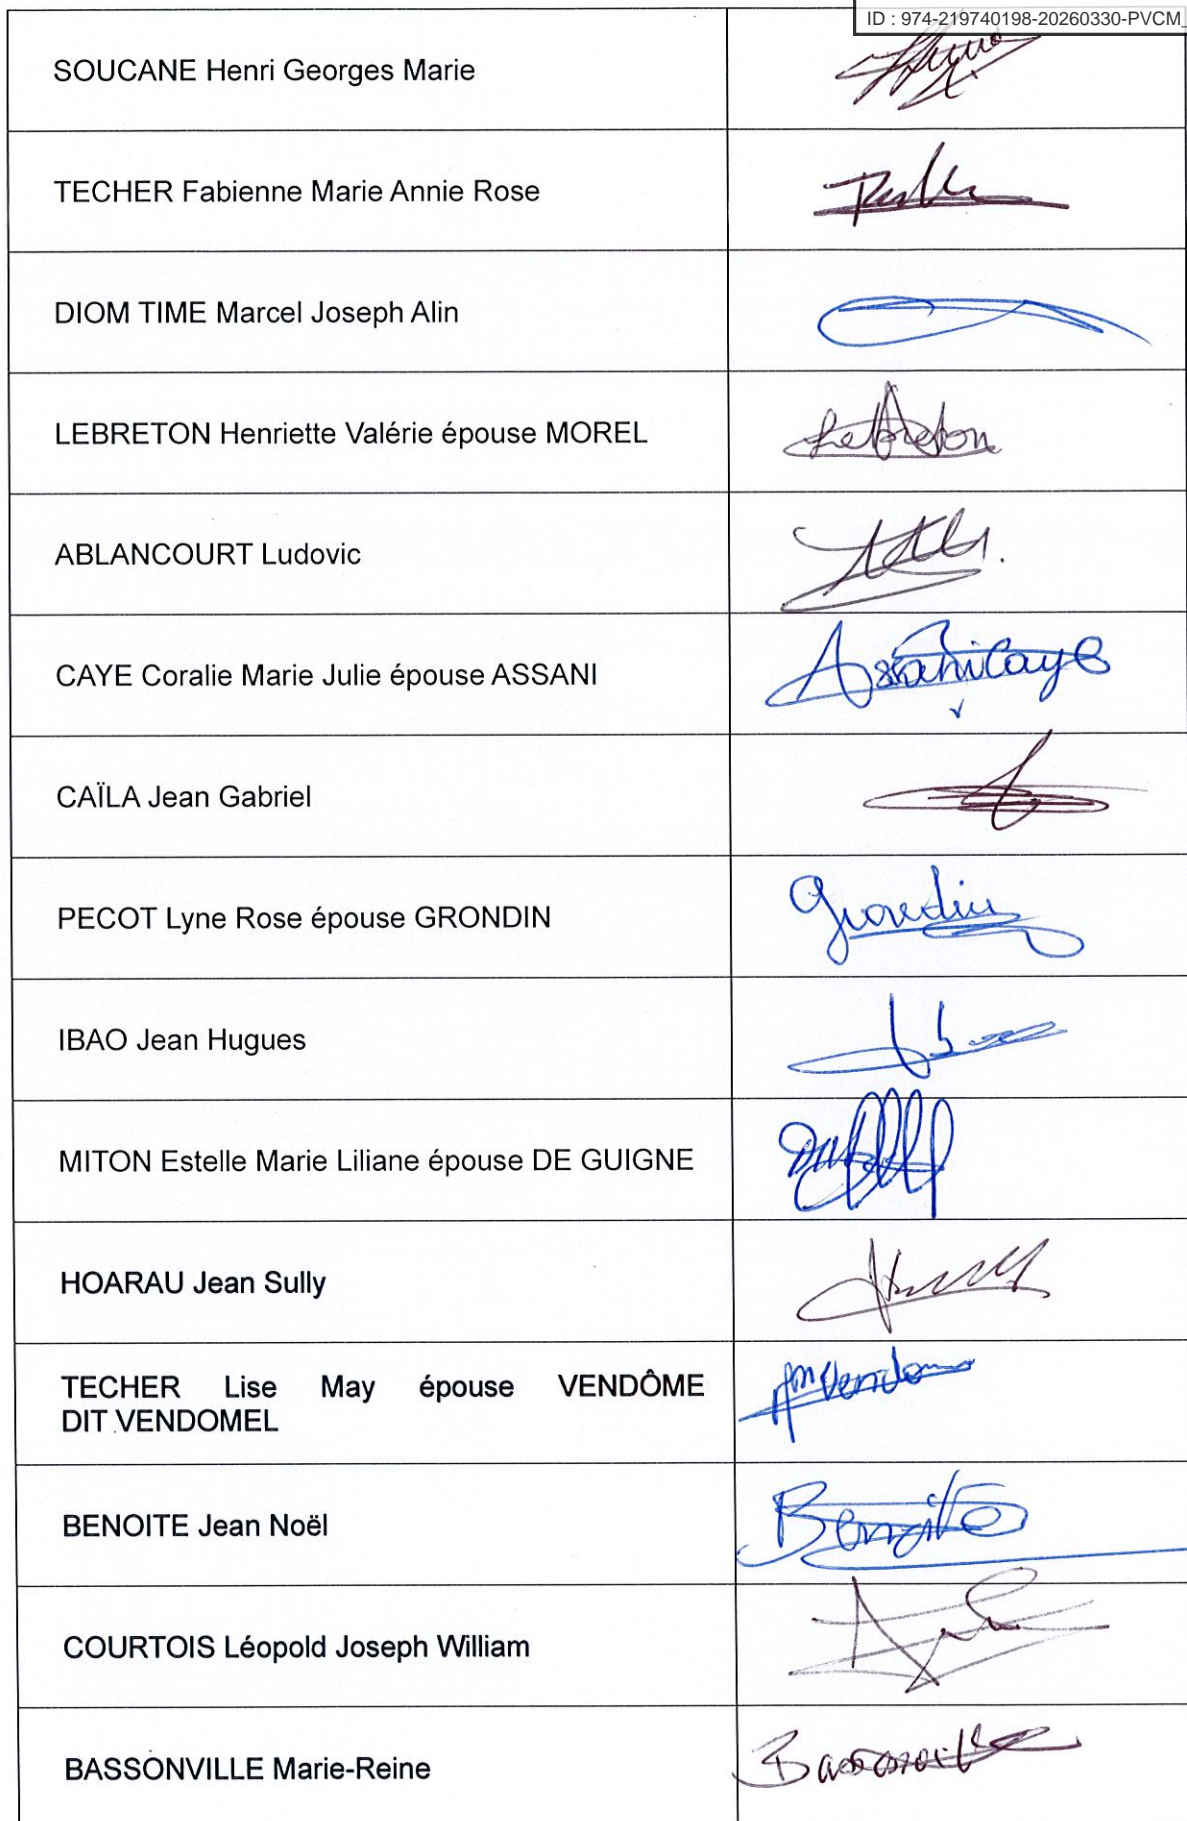 ID : 974-219740198-20260330-PVCM_
SOUCANE Henri Georges Marie
TECHER Fabienne Marie Annie Rose
DIOM TIME Marcel Joseph Alin
LEBRETON Henriette Valérie épouse MOREL
Lebreton
ABLANCOURT Ludovic
CAYE Coralie Marie Julie épouse ASSANI
Assanicaye
CAÏLA Jean Gabriel
PECOT Lyne Rose épouse GRONDIN
Grondin
IBAO Jean Hugues
MITON Estelle Marie Liliane épouse DE GUIGNE
HOARAU Jean Sully
TECHER Lise May épouse VENDÔME
DIT VENDOMEL
BENOITE Jean Noël
Benoite
COURTOIS Léopold Joseph William
BASSONVILLE Marie-Reine